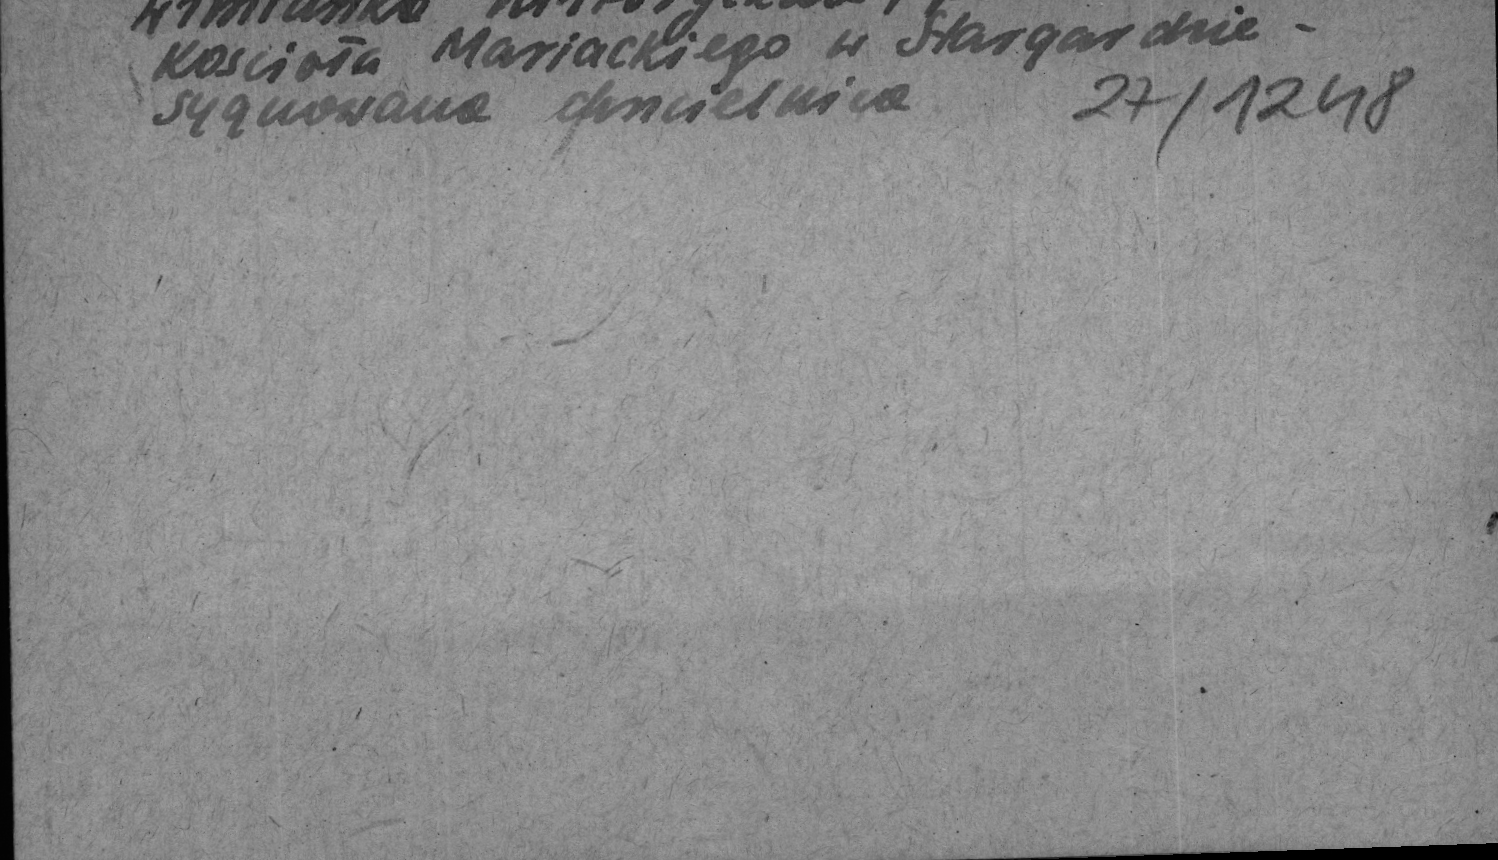 wzmianka
Kościoła Mariackiego w Stargardzie -
sygnowana chrzcielnica 27/1248